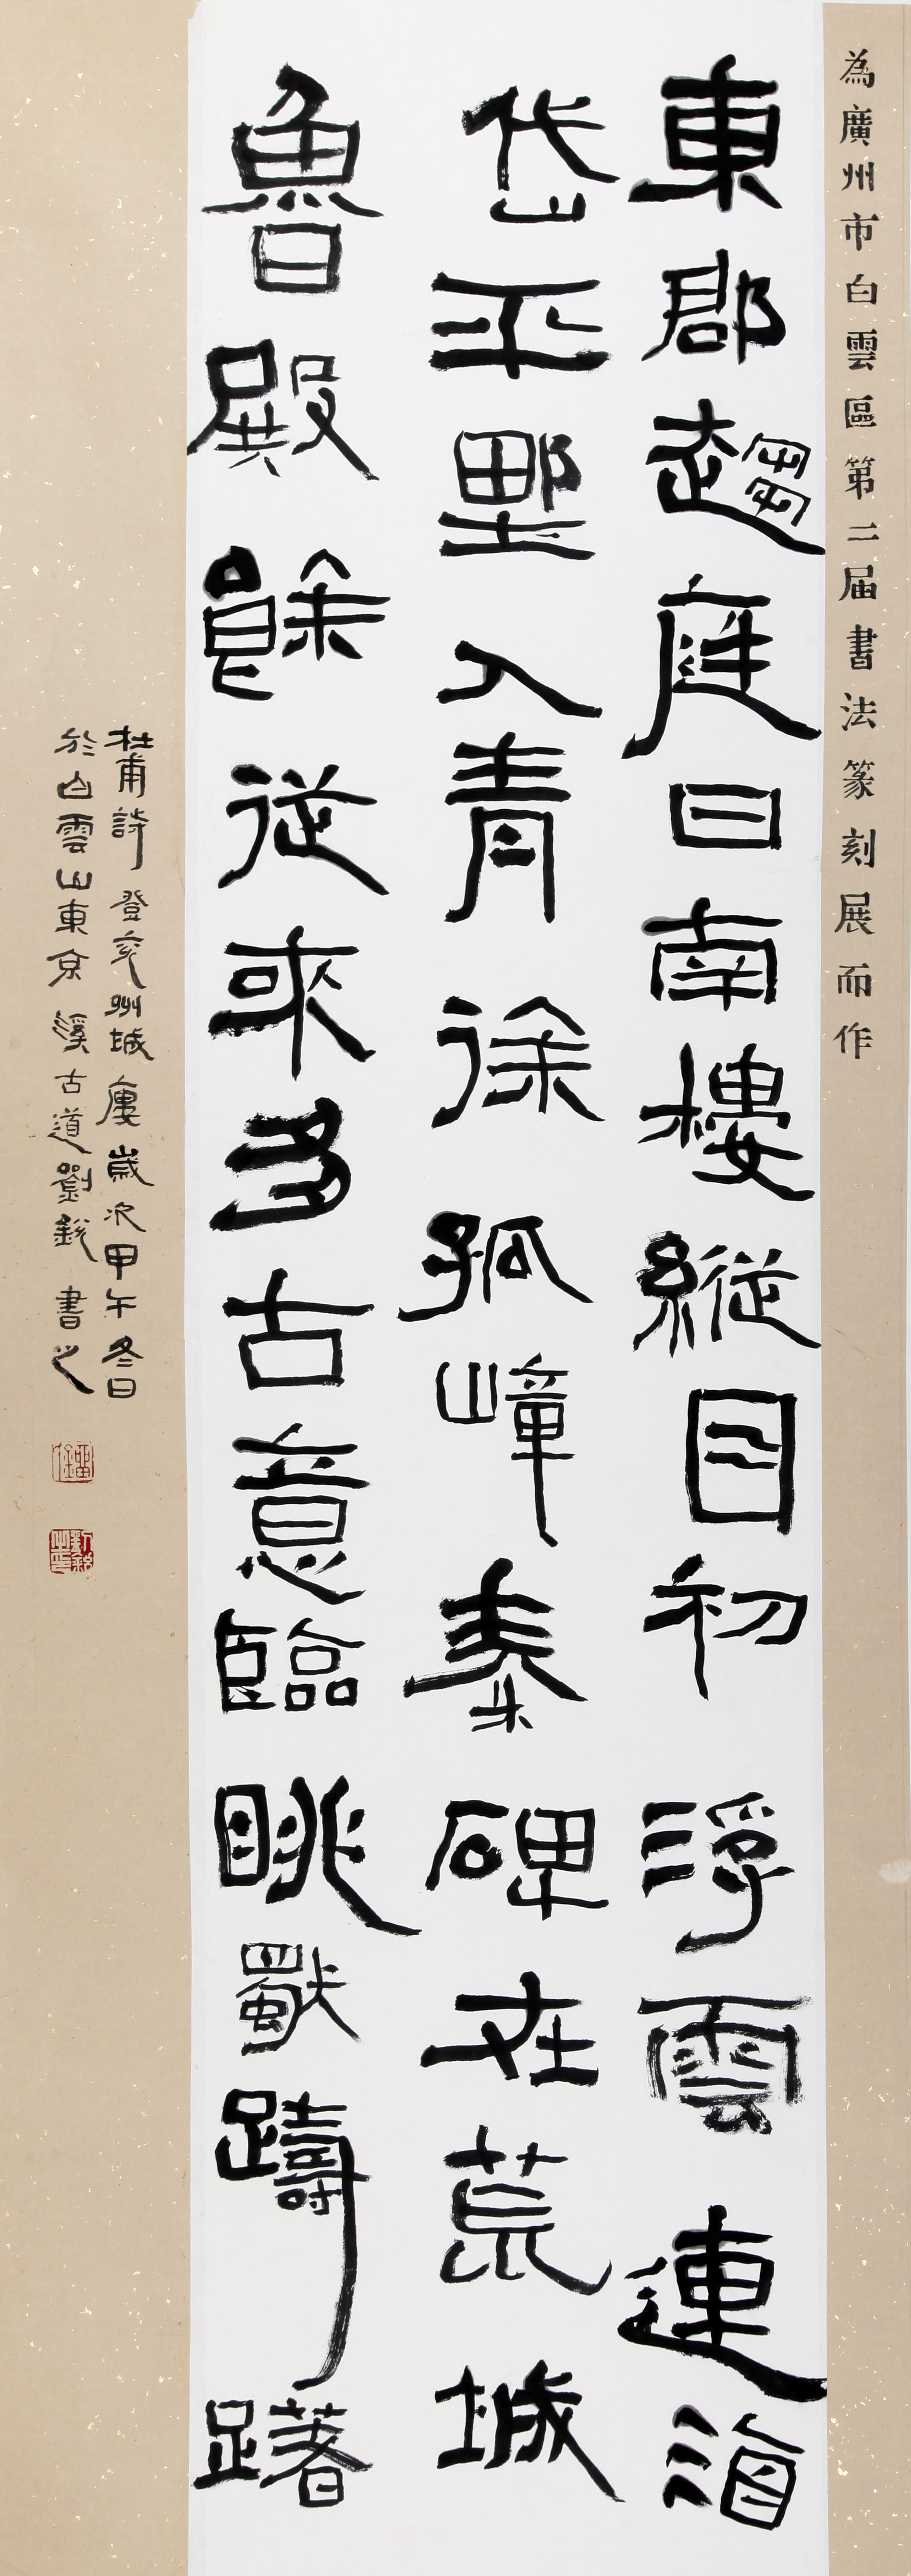 為廣州市白雲區第二届書法篆刻展而作
東郡趨庭日南樓縱目初浮雲連海
岱平野入青徐孤嶂秦碑在荒城
魯殿餘從來多古意臨眺獨躊躇
杜甫詩登兖州城廔歲次甲午冬日
於白雲山東京溪古道劉書之